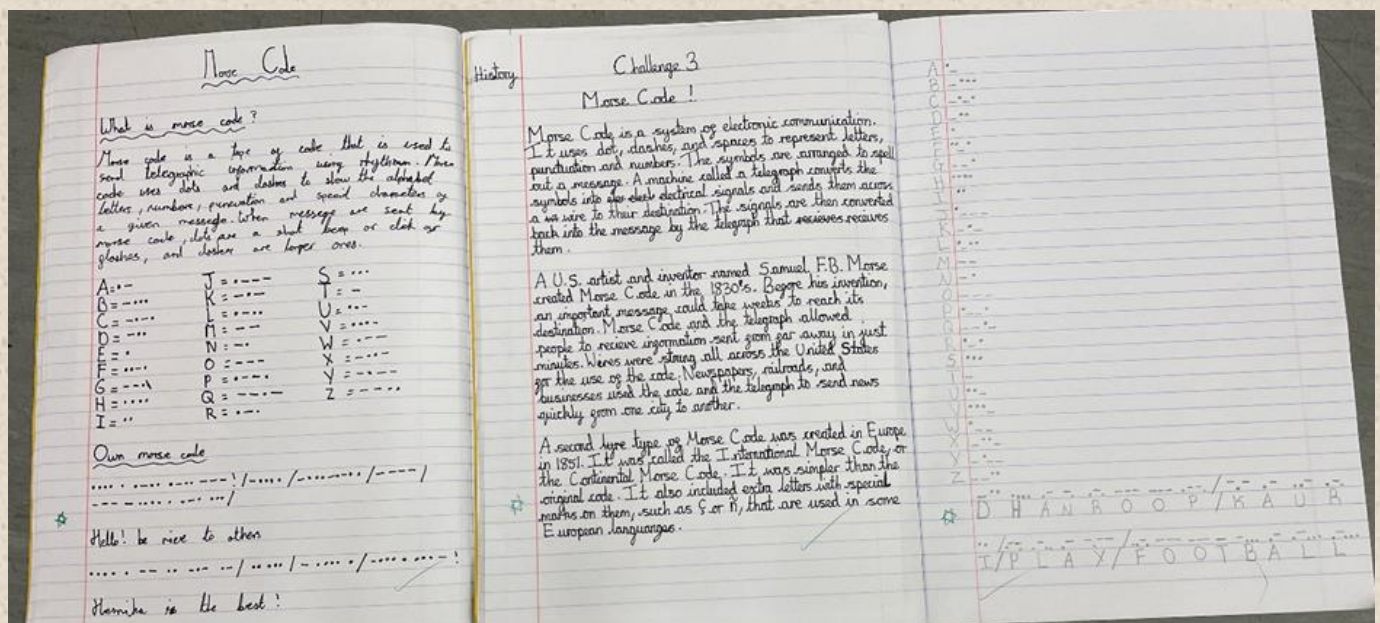 Morse Code
What is morse code?
Morse code is a type of code that is used to
send telegraphic information using rhythm. Morse
code uses dots and dashes to show the alphabet
letters, numbers, and special characters of
a given message. When message are sent by
morse code, dots are a short beep or click or
flashes, and dashes are longer ones.
A = •-
B = -•••
D = -••
E = •
H = ••••
I = ••
J = •---
K = -•-
M = --
N = -•
O = ---
P = •--•
Q = --•-
R = •-•
S = •••
T = -
U = ••-
V = •••-
W = •--
X = -••-
Y = -•--
Z = --••
Own morse code
Hello! be nice to others
is the best!
History
Challenge 3
Morse Code!
Morse Code is a system of electronic communication.
It uses dot, dashes, and spaces to represent letters,
punctuation and numbers. The symbols are arranged to spell
out a message. A machine called a telegraph converts the
symbols into electrical signals and sends them across
a wire to their destination. The signals are then converted
back into the message by the telegraph that recieves receives
them.
A U.S. artist and inventor named Samuel F.B. Morse
created Morse Code in the 1830's. Before his invention,
an important message could take weeks to reach its
destination. Morse Code and the telegraph allowed
people to recieve information sent from far away in just
minutes. Wires were strung all across the United States
for the use of the code. Newspapers, railroads, and
businesses used the code and the telegraph to send news
quickly from one city to another.
A second type of Morse Code was created in Europe
in 1851. It was called the International Morse Code, or
the Continental Morse Code. It was simpler than the
original code. It also included extra letters with special
marks on them, such as ç or ñ, that are used in some
European languanges.
A •-
B -•••
C -•-•
D -••
E •
F ••-•
G --•
H ••••
I ••
J •---
K -•-
L •-••
M --
N -•
O ---
P •--•
Q --•-
R •-•
S •••
T -
U ••-
V •••-
W •--
X -••-
Y -•--
Z --••
D H A N R O O P / K A U R
I / P L A Y / F O O T B A L L